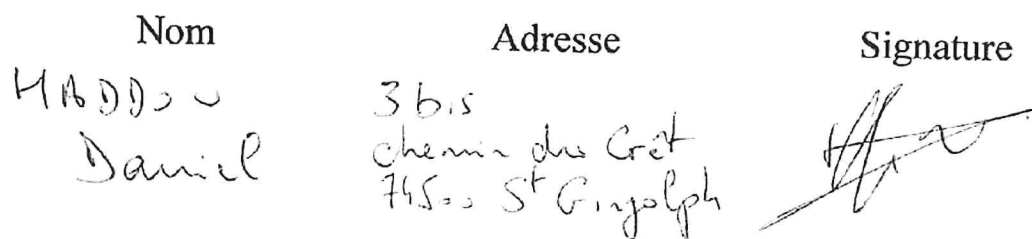 Nom Adresse Signature
HADDOU 3 bis
Daniel chemin du Crêt
74500 St Gingolph